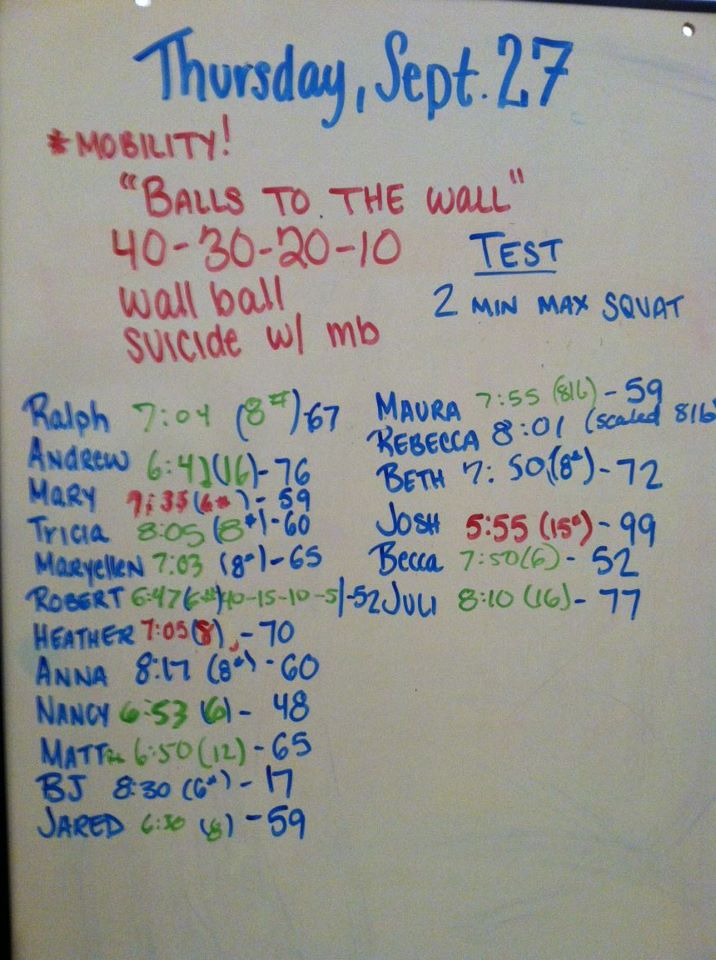 Thursday, Sept. 27
*MOBILITY!
"BALLS TO THE WALL"
40-30-20-10
wall ball
suicide w/ mb
TEST
2 MIN MAX SQUAT
Ralph 7:04 (8#)-67
ANDREW (16)-76
MARY 7:35 (6#)-59
Tricia 8:05 (8#)-60
Maryellen 7:03 (8#)-65
ROBERT 6:47 (6#) 40-15-10-5/-52
HEATHER 7:05 (8) -70
ANNA 8:17 (8#)-60
NANCY 6:53 (6)- 48
MATT 6:50 (12)-65
BJ 8:30 (6#)-17
JARED 6:30 (8)-59
MAURA 7:55 (8lb)-59
REBECCA 8:01 (scaled 8lb
BETH 7:50 (8#)-72
JOSH 5:55 (15#)-99
Becca 7:50 (6)-52
JULI 8:10 (16)-77